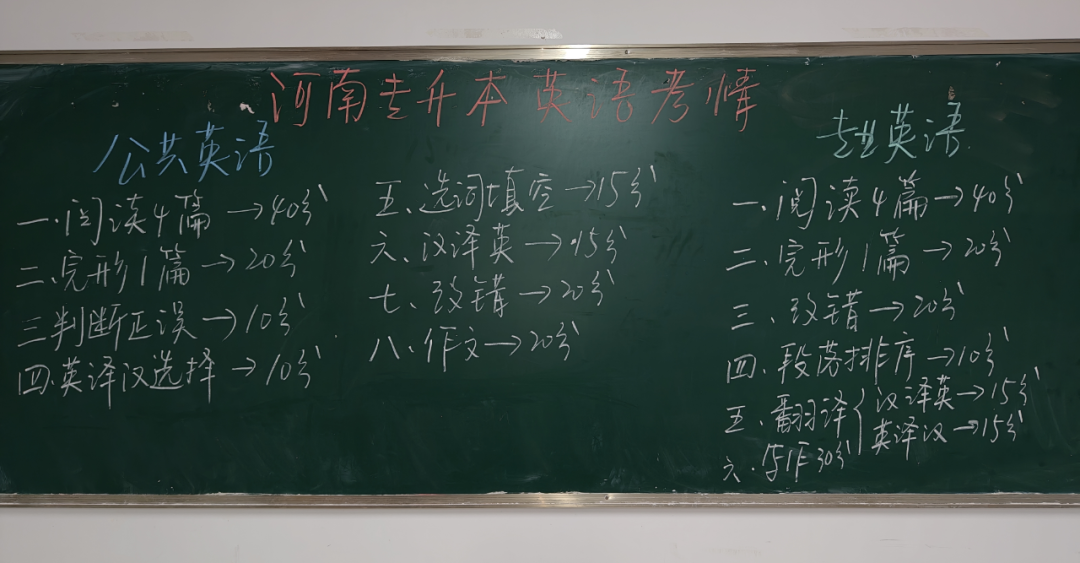 河南专升本英语考情
公共英语
一.阅读4篇→40分
二.完形1篇→20分
三判断正误→10分
四.英译汉选择→10分
五.选词填空→15分
六、汉译英→15分
七、改错→20分
八.作文→20分
专业英语
一.阅读4篇→40分
二、完形1篇→20分
三、改错→20分
四、段落排序→10分
五、翻译{汉译英→15分
英译汉→15分
六.写作30分